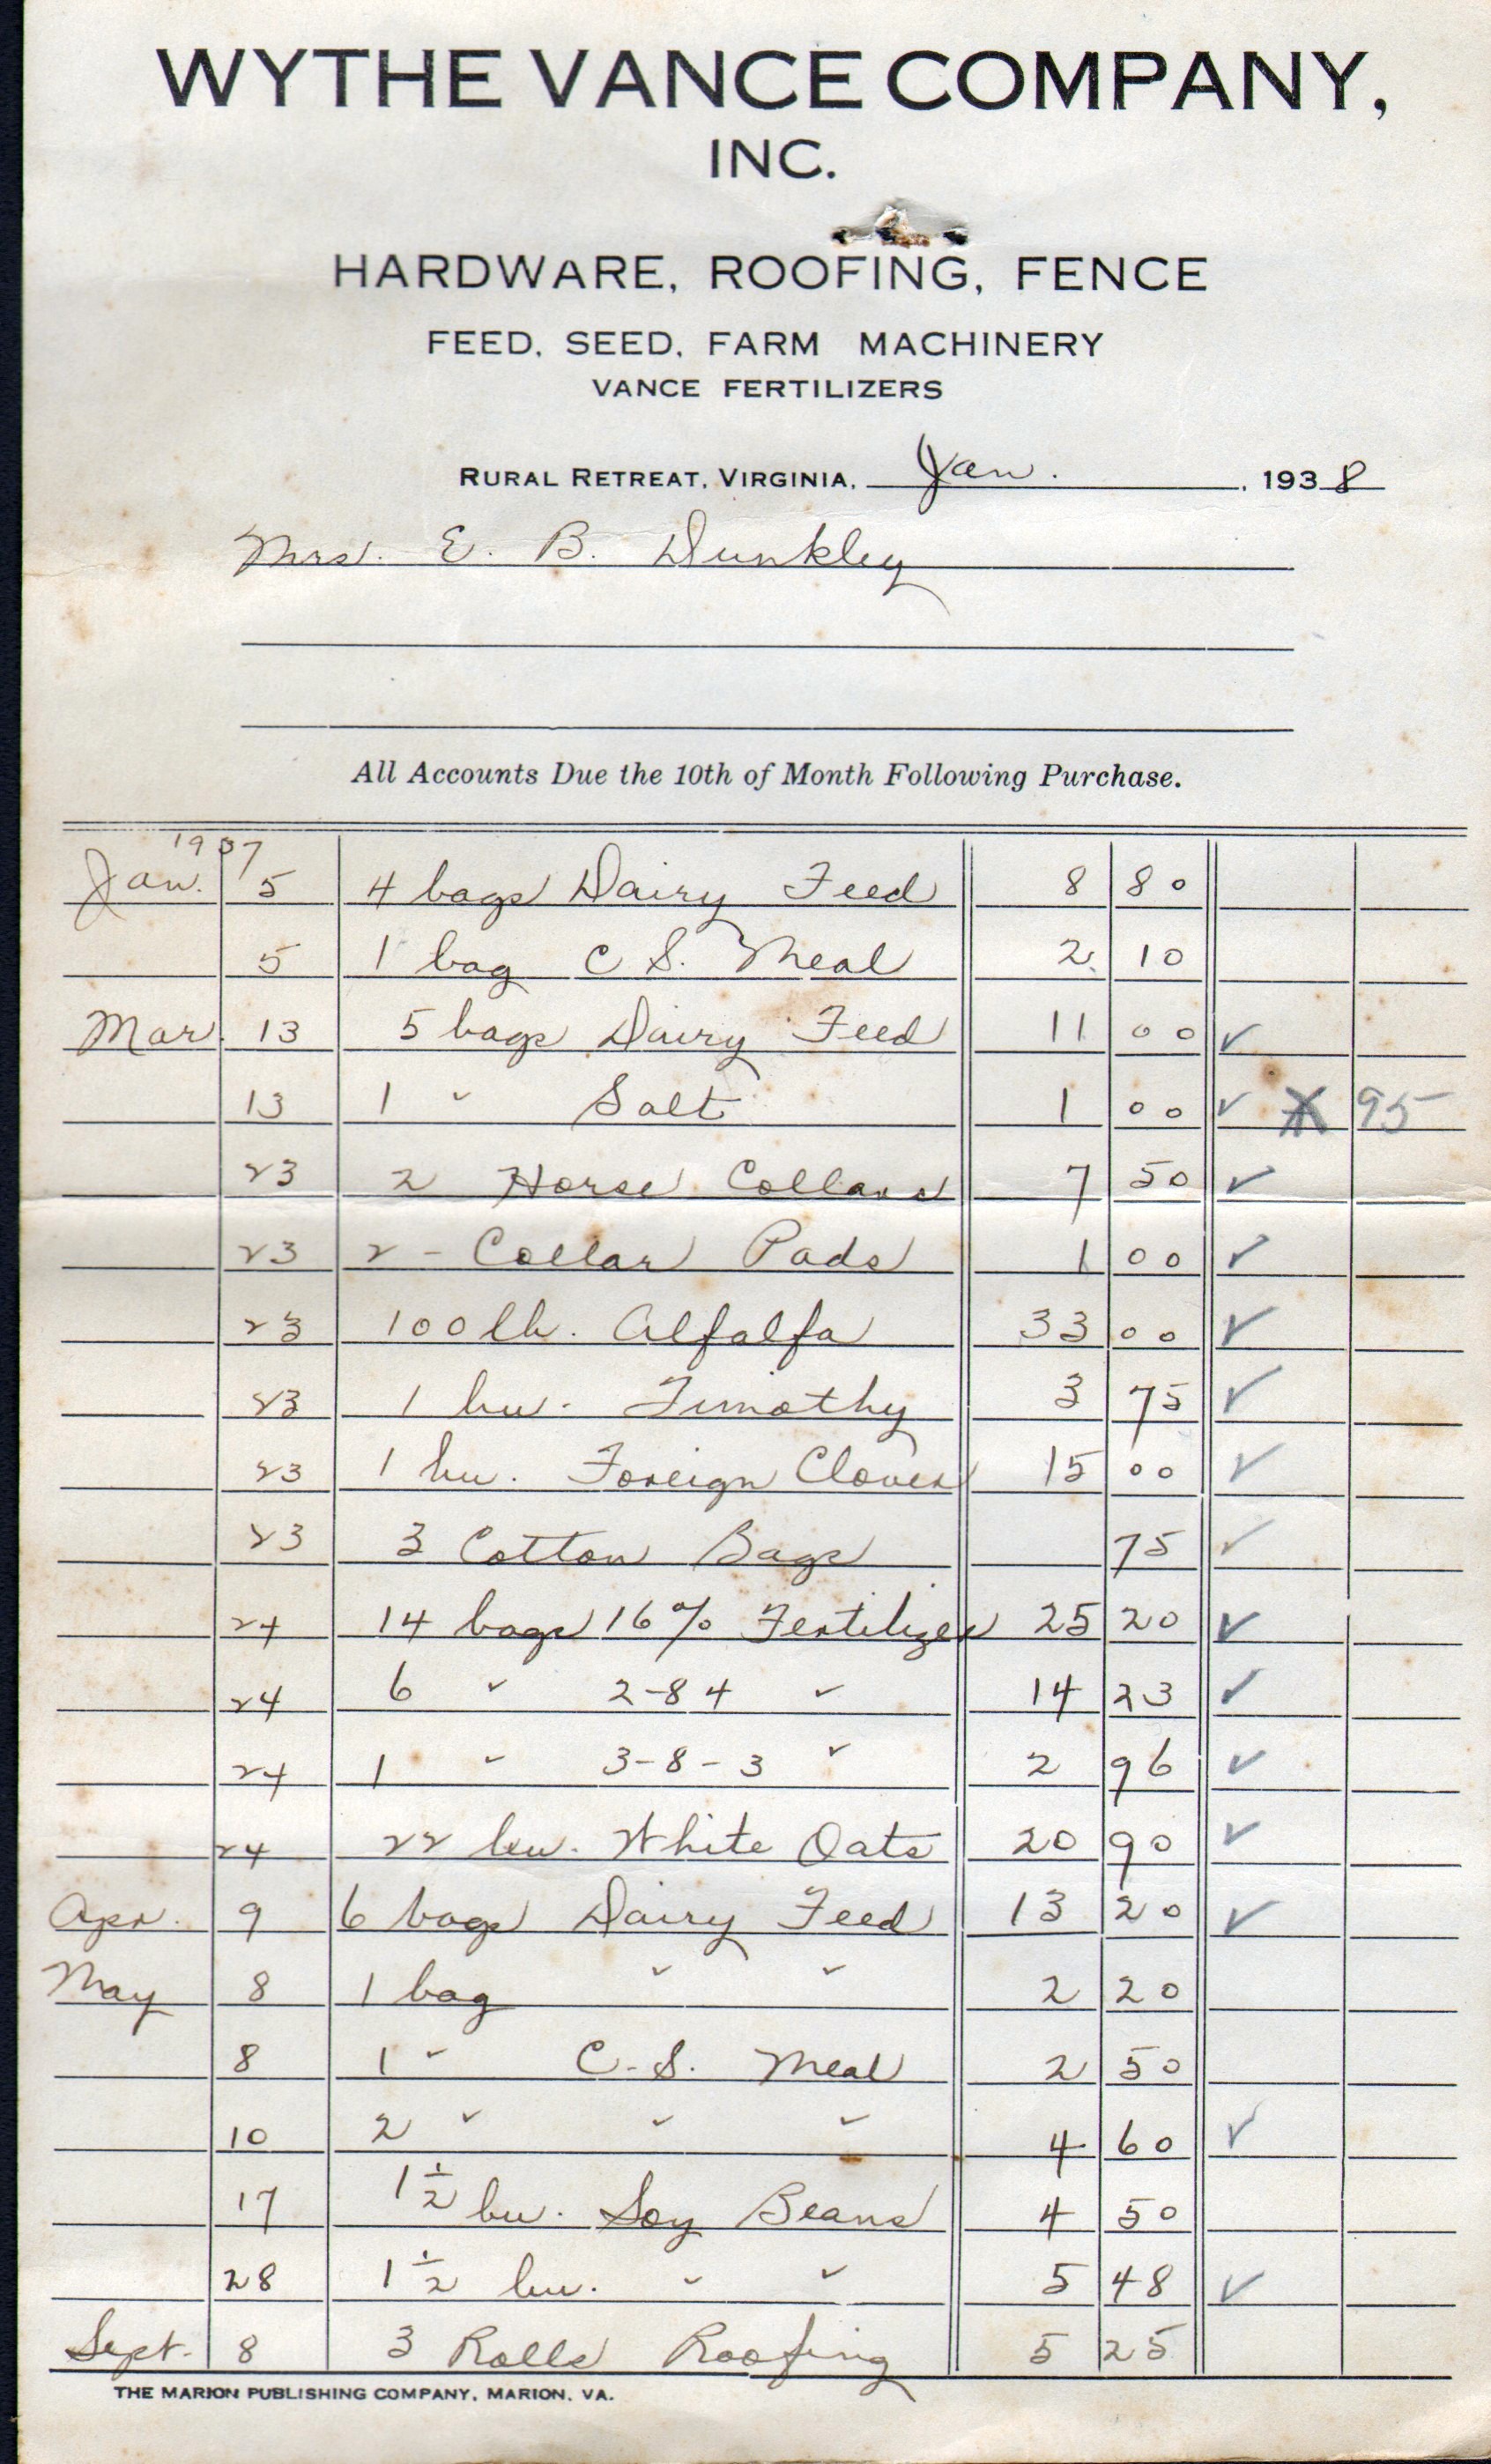 WYTHE VANCE COMPANY,
INC.
HARDWARE, ROOFING, FENCE
FEED, SEED, FARM MACHINERY
VANCE FERTILIZERS
RURAL RETREAT, VIRGINIA, Jan. , 1938
Mrs. E. B. Dunkley
All Accounts Due the 10th of Month Following Purchase.
1937
Jan. 5 4 bags Dairy Feed 8 80
5 1 bag C S. Meal 2 10
Mar. 13 5 bags Dairy Feed 11 00 ✓
13 1 " Salt 1 00 ✓ 95
23 2 Horse Collars 7 50 ✓
23 2 - Collar Pads 1 00 ✓
23 100 lb. Alfalfa 33 00 ✓
23 1 bu. Timothy 3 75 ✓
23 1 bu. Foreign Clover 15 00 ✓
23 3 Cotton Bags 75 ✓
24 14 bags 16% Fertilizer 25 20 ✓
24 6 " 2-8 4 " 14 23 ✓
24 1 " 3-8-3 " 2 96 ✓
24 22 bu. White Oats 20 90 ✓
Apr. 9 6 bags Dairy Feed 13 20 ✓
May 8 1 bag " " 2 20
8 1 " C.S. Meal 2 50
10 2 " " " 4 60 ✓
17 1 1/2 bu. Soy Beans 4 50
28 1 1/2 bu. " " 5 48 ✓
Sept. 8 3 Rolls Roofing 5 25
THE MARION PUBLISHING COMPANY, MARION, VA.